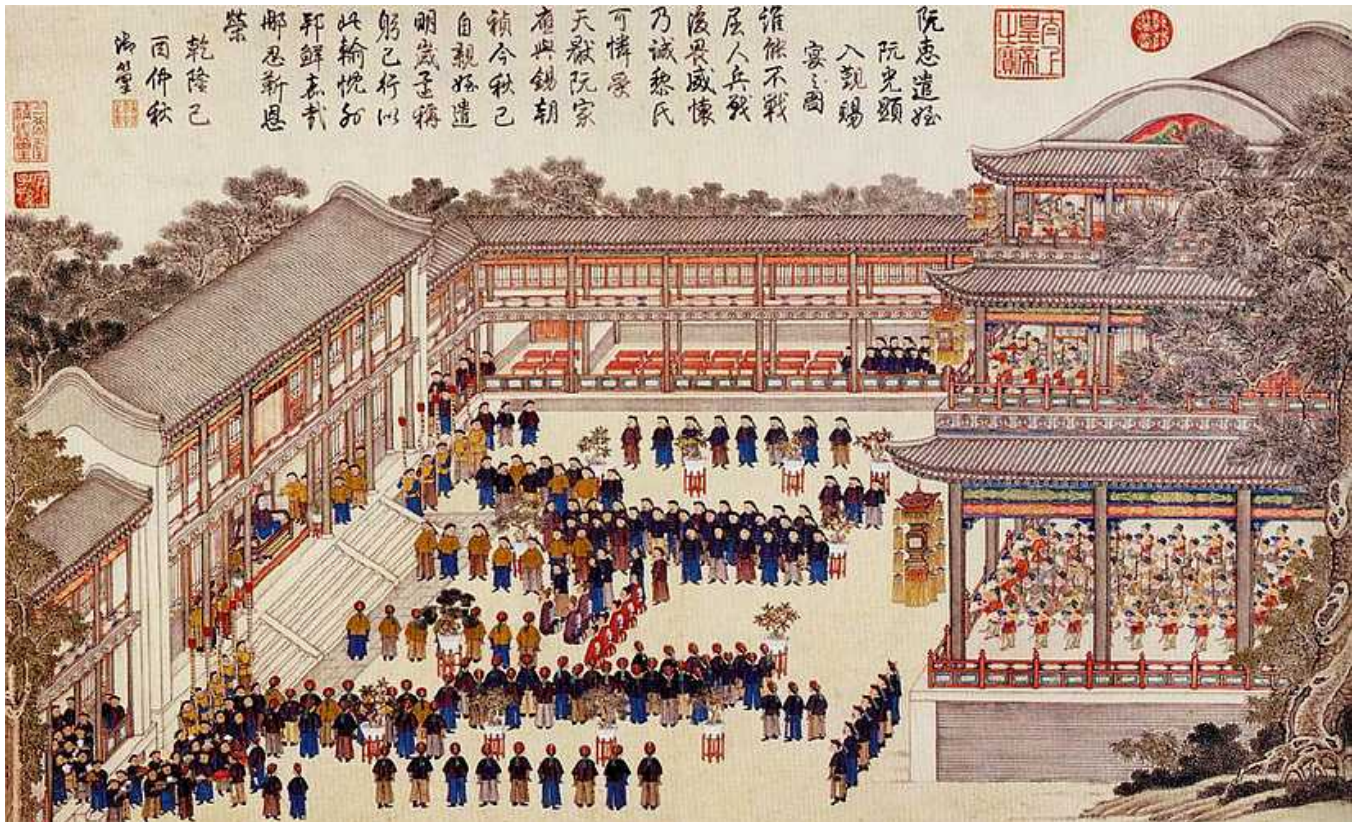 阮惠遣姪
阮光顯
入覲賜
宴之圖
誰能不戰
屈人兵戰
後畏威懷
乃誠黎氏
可憐受
天厭阮家
應與錫朝
禎今秋已
自親姪遣
明歲還稱
躬己行似
此輸忱外
邦鮮嘉哉
那忍靳恩
榮
乾隆己
酉仲秋
御筆
太上皇帝之寶